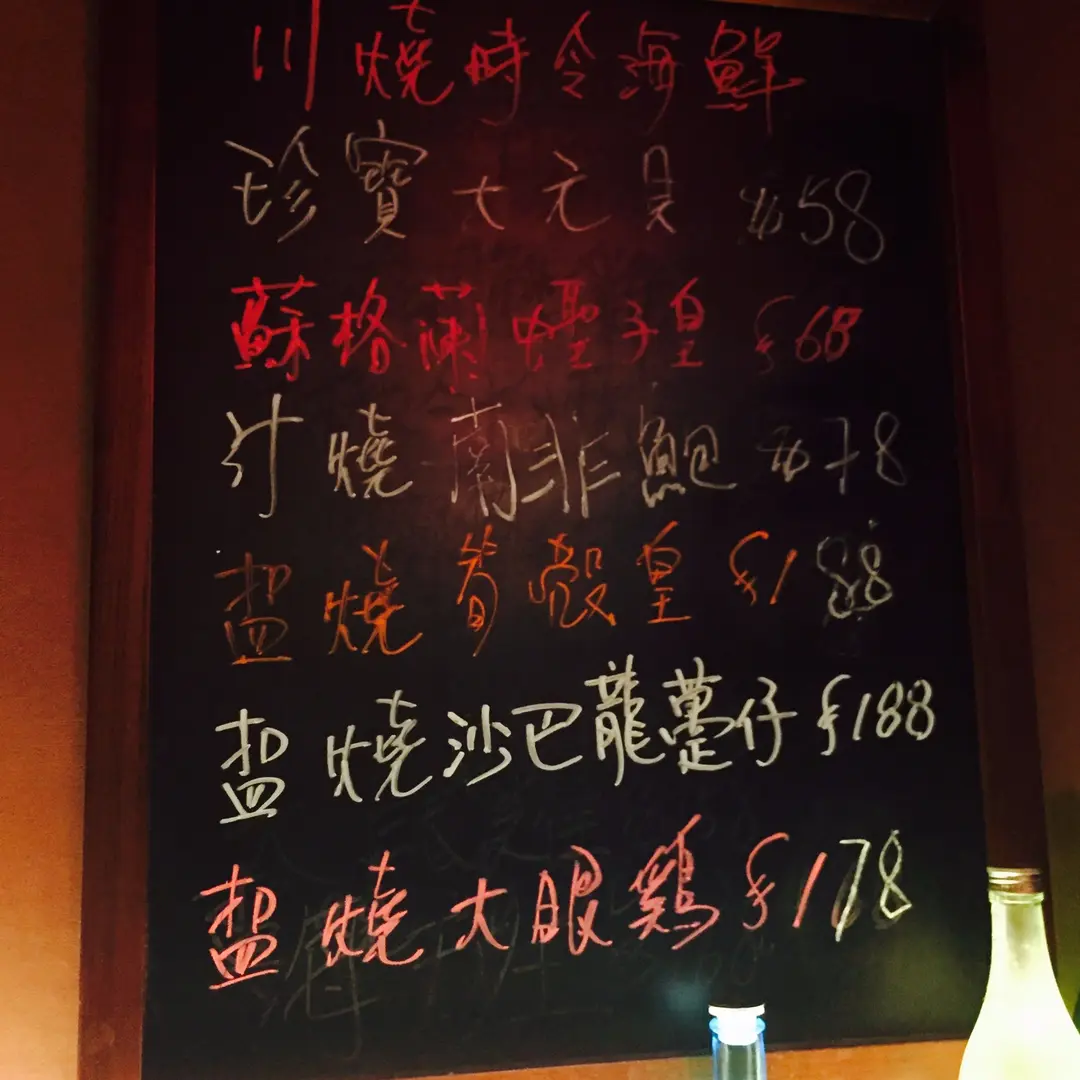 川燒時令海鮮
珍寶大元貝 $58
蘇格蘭蟶子皇 $68
汁燒南非鮑 $78
盐燒筍殼皇 $188
盐燒沙巴龍躉仔 $188
盐燒大眼鷄 $178